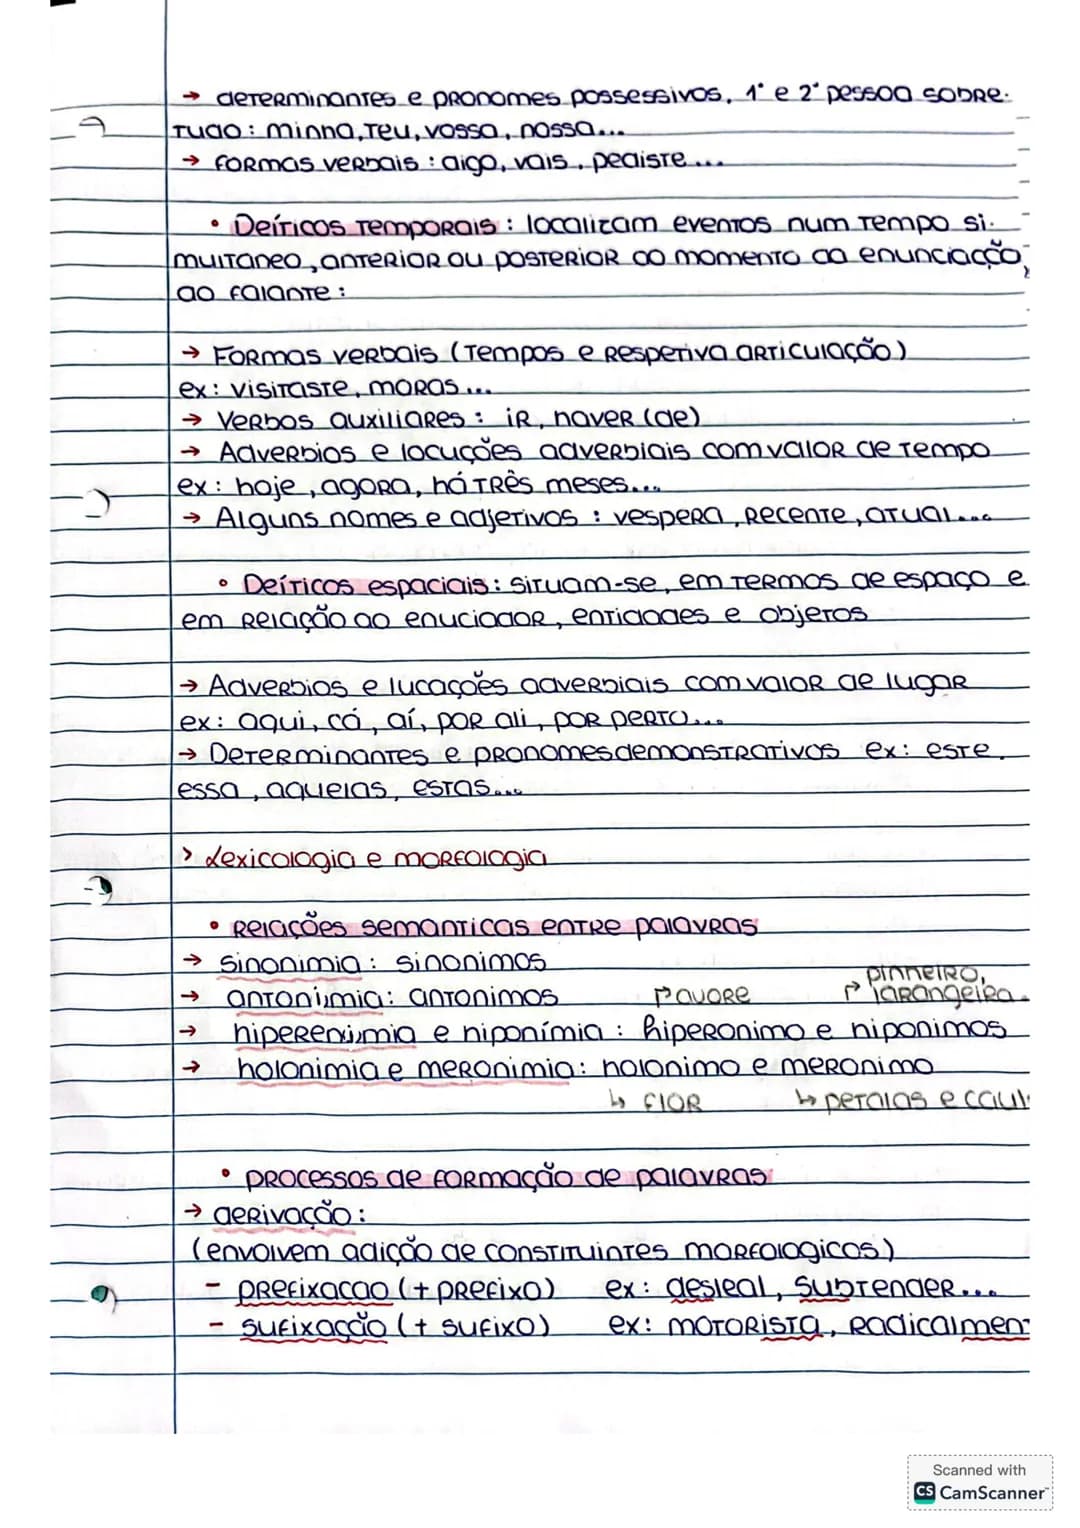 → determinantes e pronomes possessivos, 1ª e 2ª pessoa sobre-
tudo: minha, teu, vossa, nossa...
→ formas verbais: digo, vais, pediste...
• Deíticos temporais: localizam eventos num tempo si-
multaneo, anterior ou posterior ao momento da enunciação,
ao falante:
→ Formas verbais (tempos e respetiva articulação)
ex: visitaste, moras...
→ Verbos auxiliares: ir, haver (de)
→ Adverbios e locuções adverbiais com valor de tempo
ex: hoje, agora, há três meses...
→ Alguns nomes e adjetivos: vespera, recente, atual...
• Deíticos espaciais: situam-se, em termos de espaço e
em relação ao enuciador, entidades e objetos
→ Adverbios e lucações adverbiais com valor de lugar
ex: aqui, cá, aí, por ali, por perto...
→ Determinantes e pronomes demonstrativos ex: este,
essa, aquelas, estas...
> Lexicologia e morfologia
• Relações semanticas entre palavras
→ sinonimia: sinonimos
pinheiro,
→ antonimia: antonimos ↱ avore ↱ larangeira.
→ hiperenimia e hiponímia: hiperonimo e hiponimos
→ holonimia e meronimia: holonimo e meronimo
↳ flor ↳ petalas e caul
• processos de formação de palavras
→ derivação:
(envolvem adição de constituintes morfologicos)
- prefixacao (+ prefixo) ex: desleal, subtender...
- sufixação (+ sufixo) ex: motorista, radicalmen
Scanned with
CS CamScanner